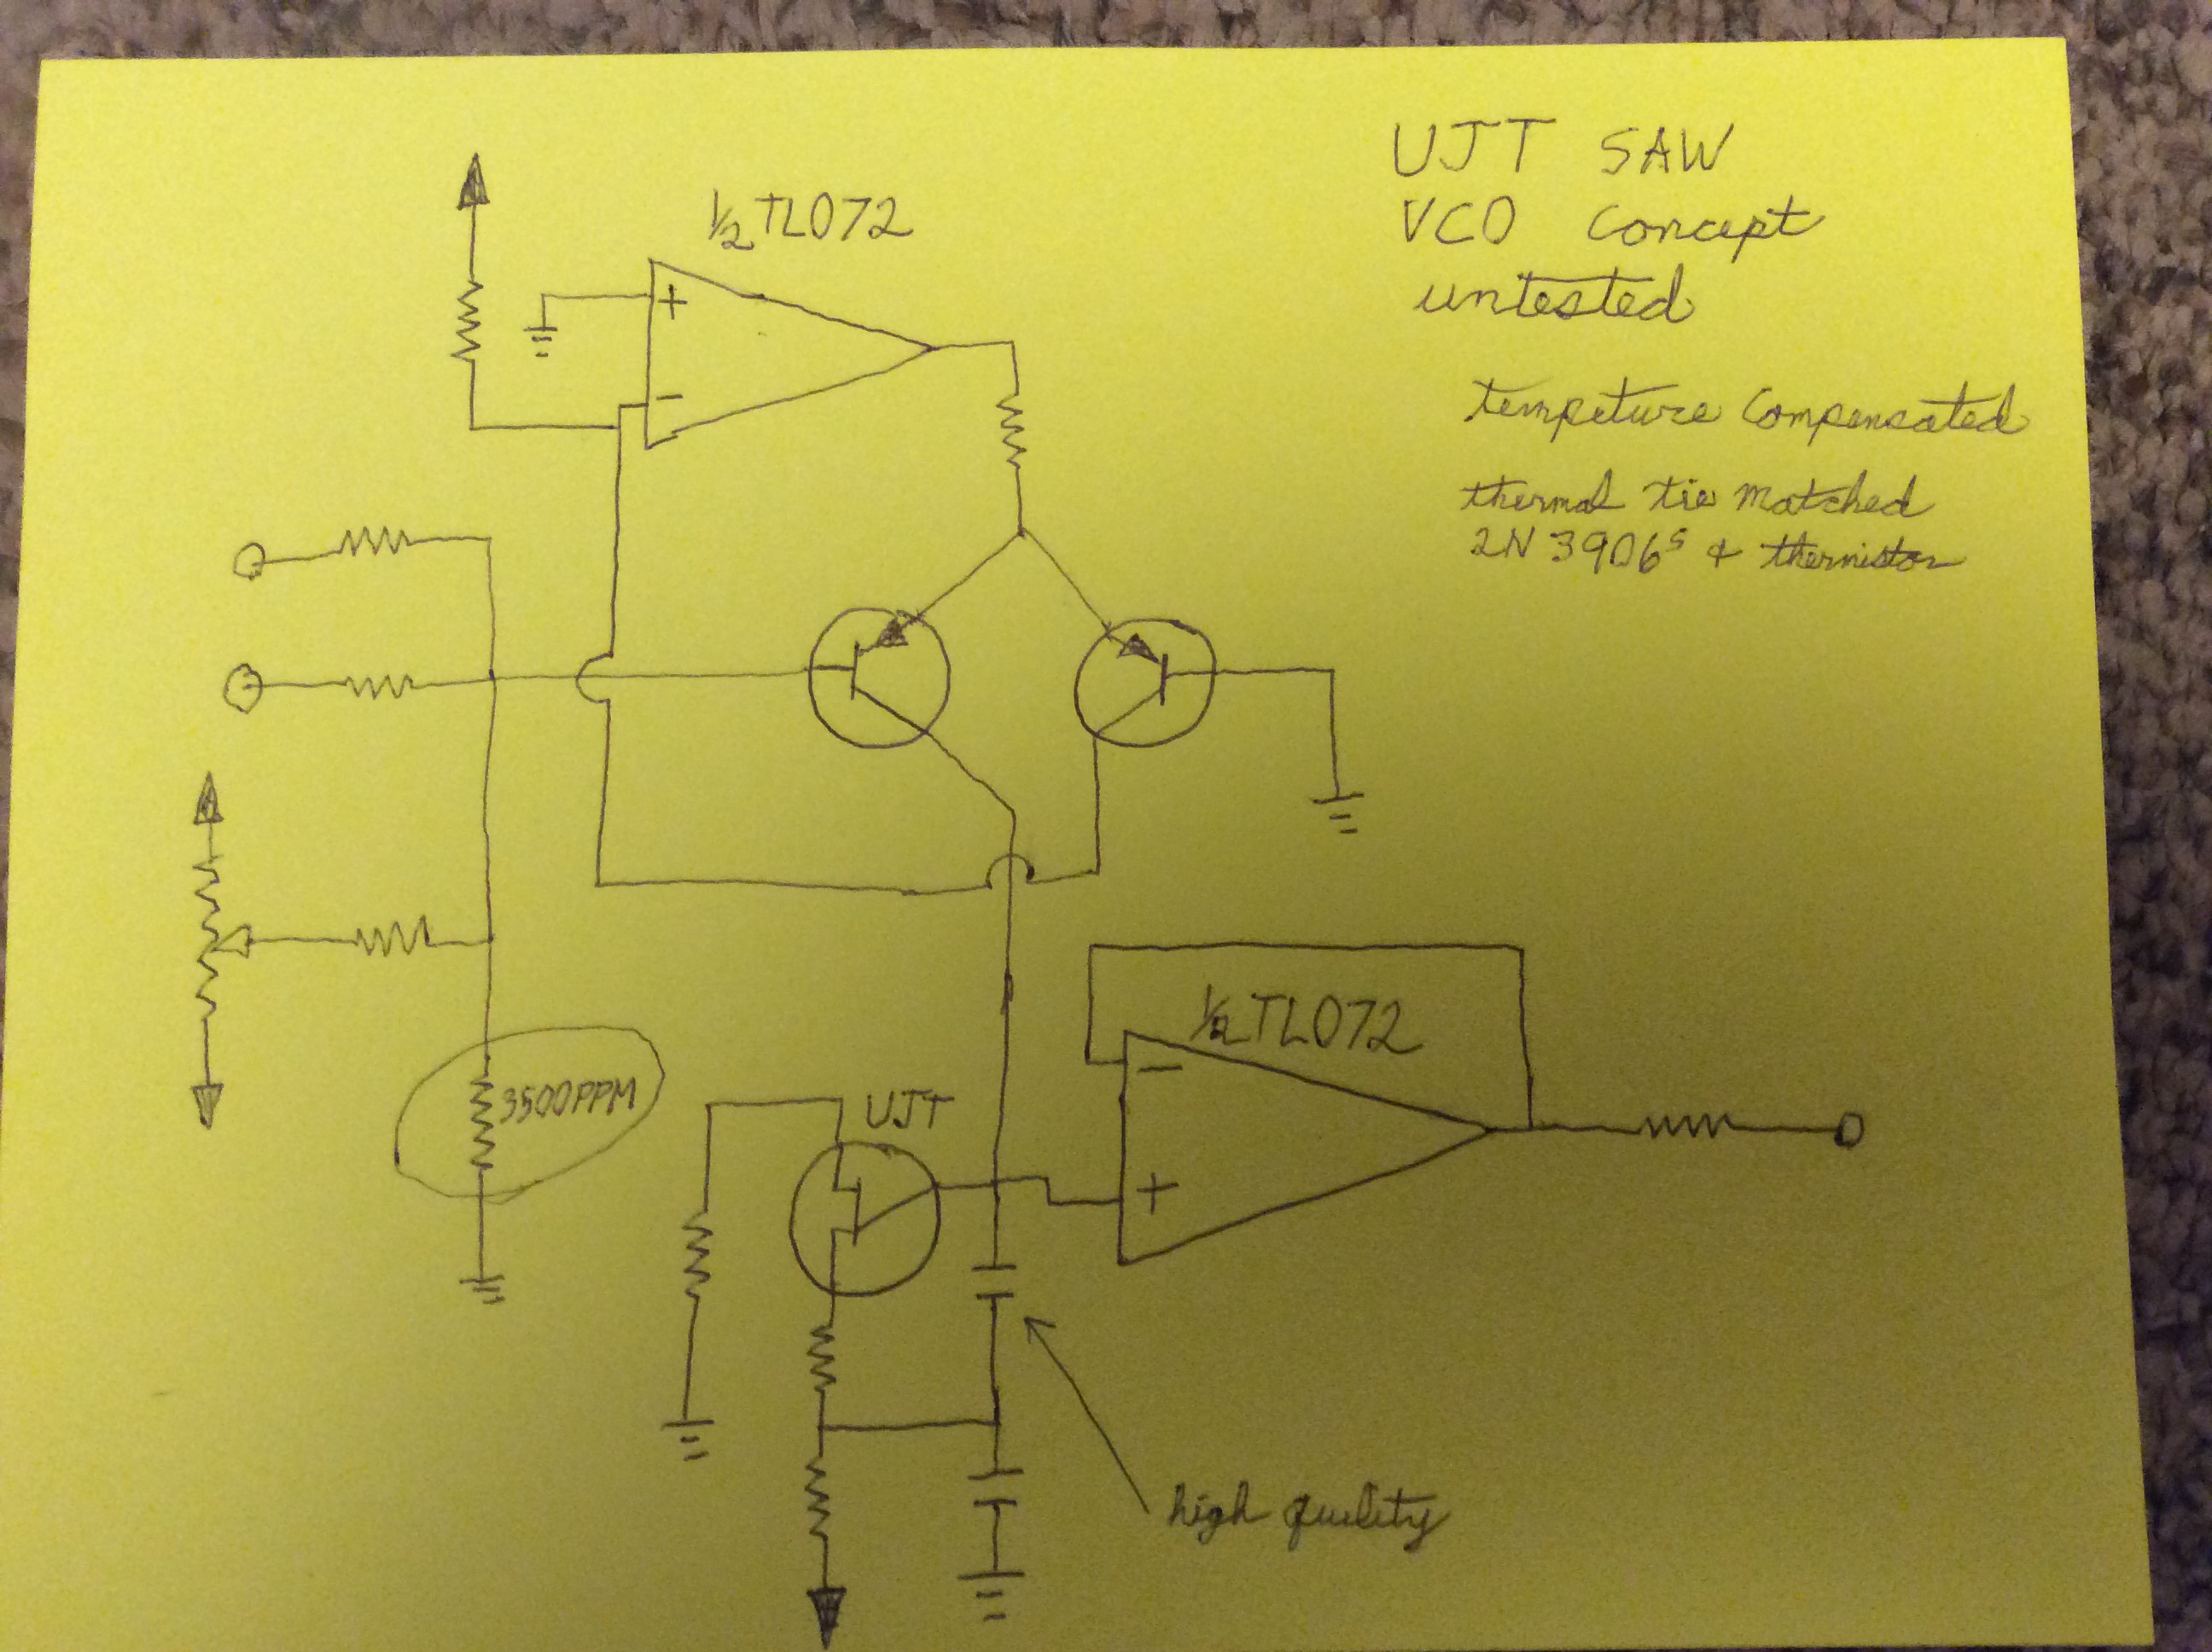 UJT SAW
VCO Concept
untested
tempeture Compensated
thermal tie matched
2N3906s & thermistor
½TL072
+
-
3500PPM
UJT
½TL072
-
+
high quility